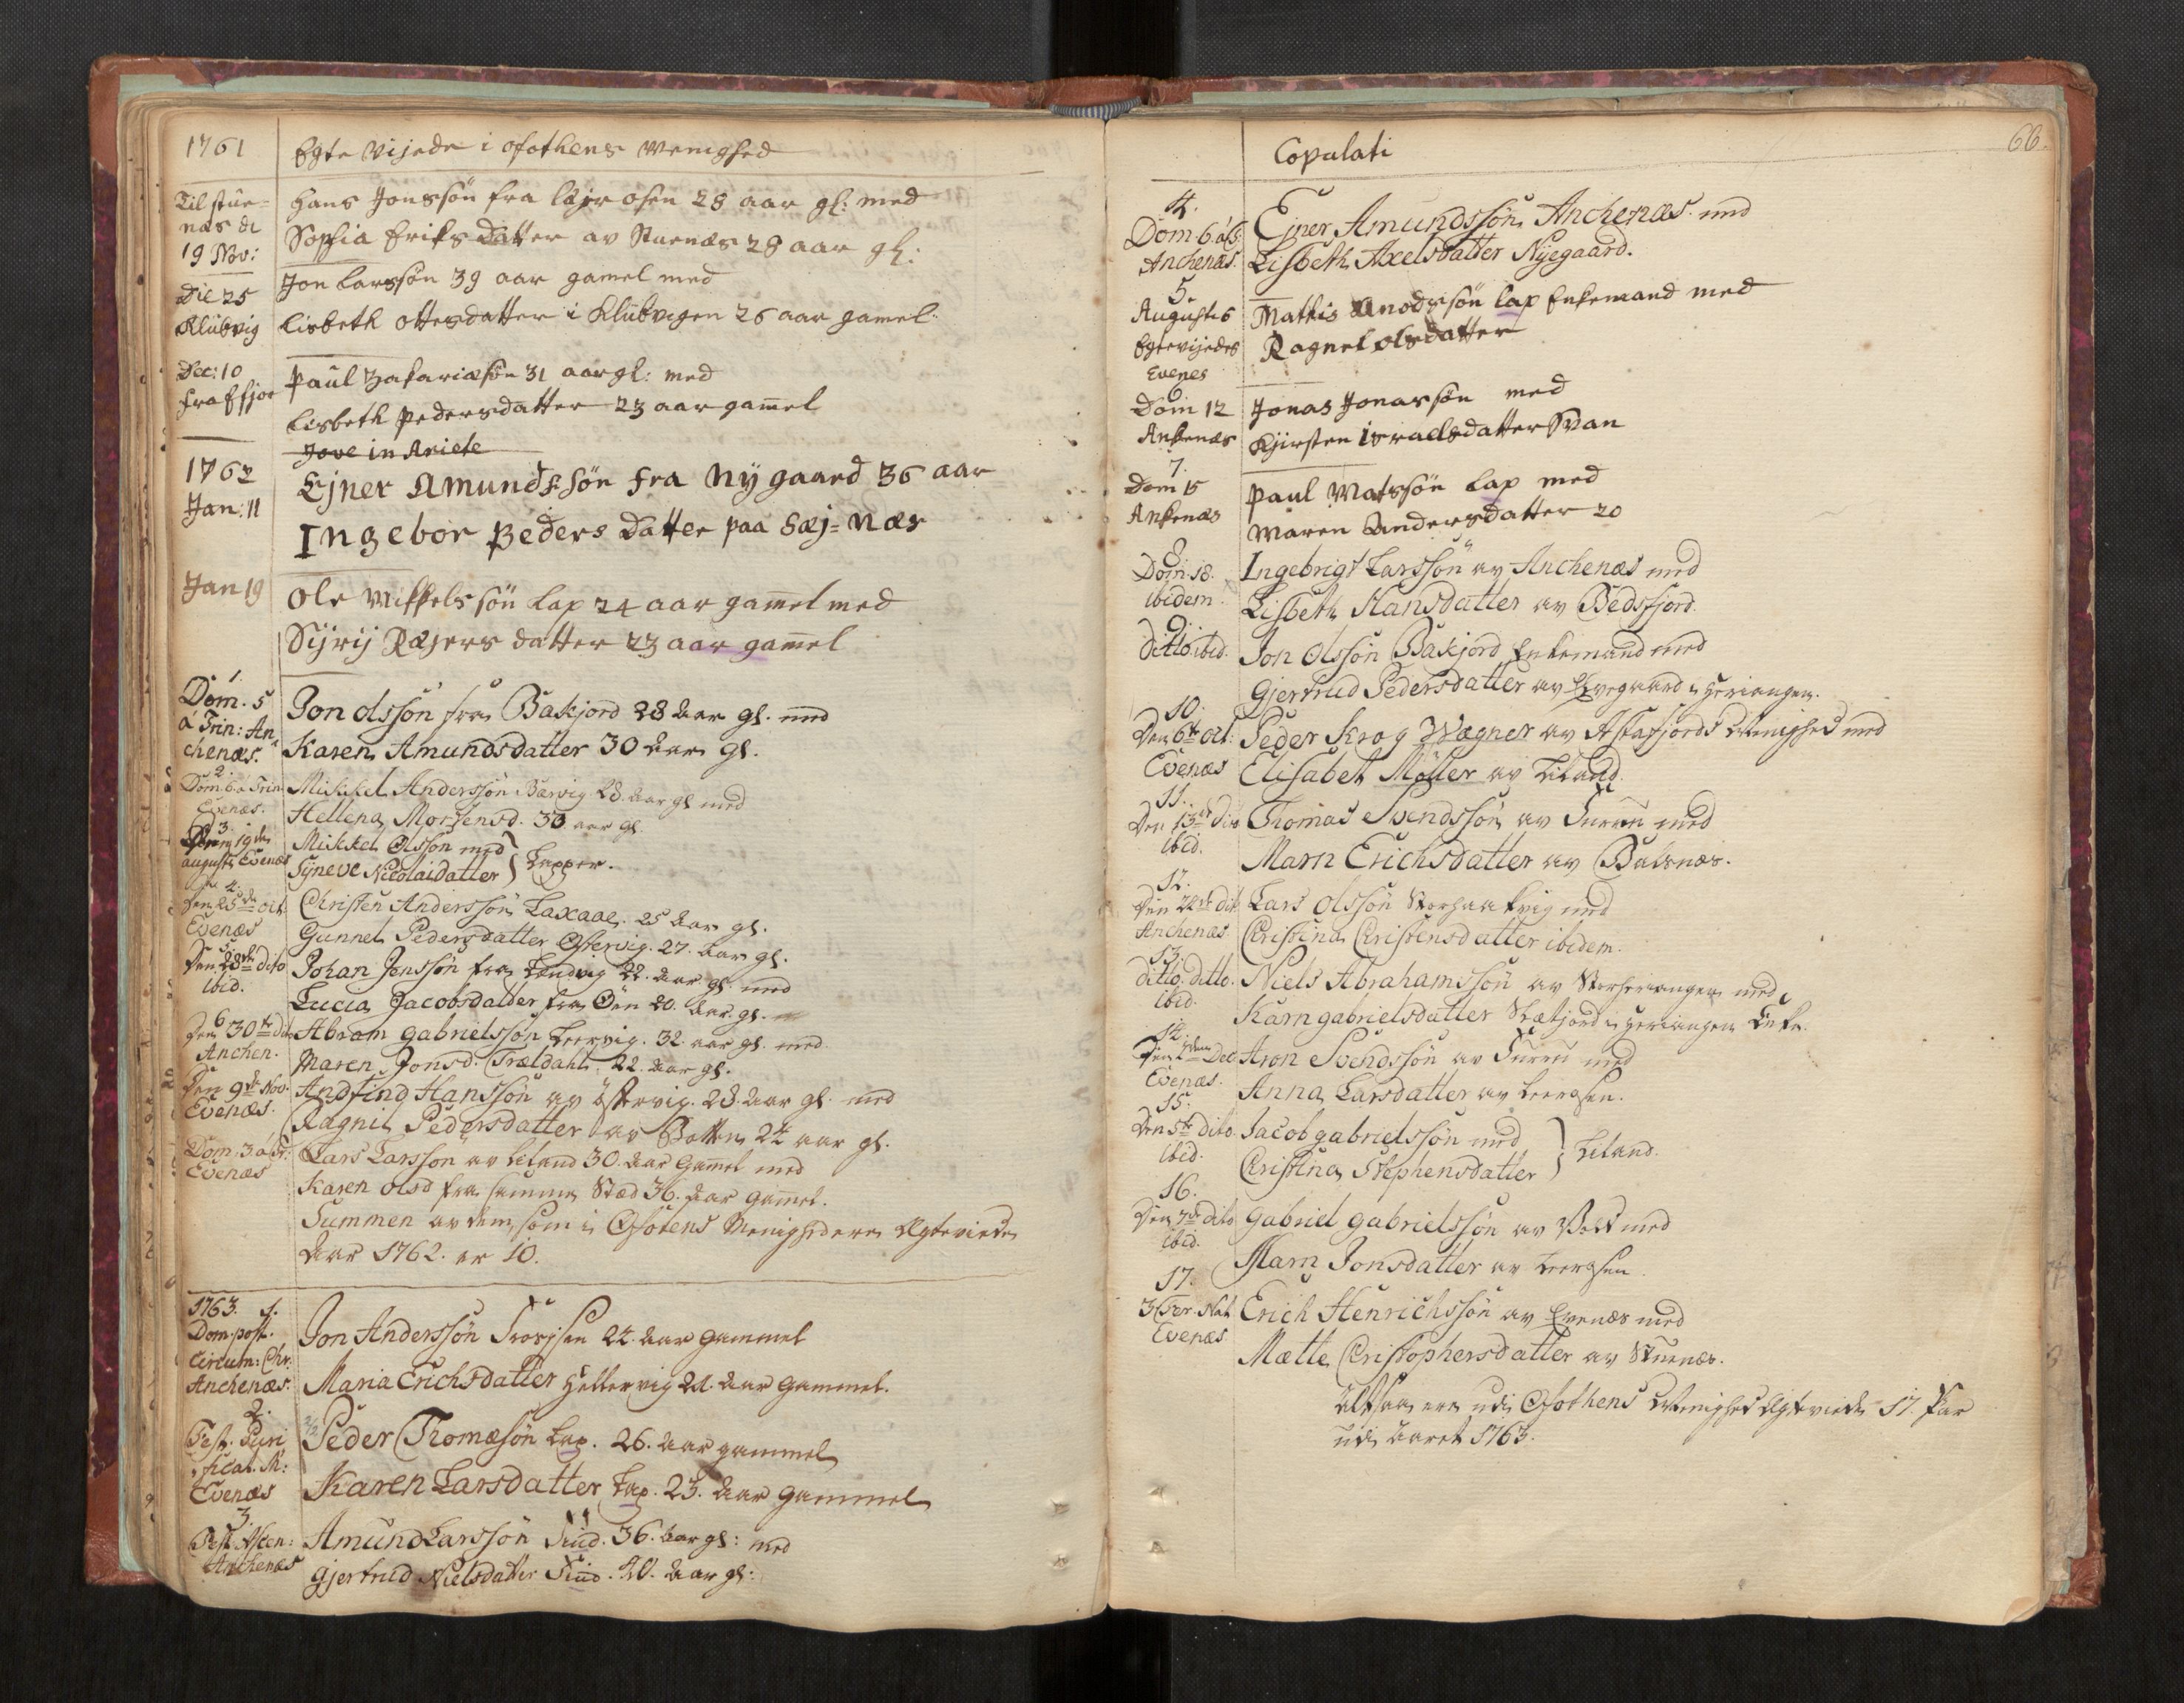 1761
Egte Vijede i Ofothens Menighed
Til stue-
næs d
19 Nov:
Hans Jonssön fra Lejrosen 28 aar gl: med
Sophia Eriks Datter av Stuenæs 28 aar gl:
Die 25
Klubvig
Jon Larssön 39 aar gamel med
Lisbeth Ottesdatter i Klubvigen 26 aar gamel.
Dec: 10
fra Effjor
Paul Zakariæsön 31 aar gl: med
Lisbeth Pedersdatter 23 aar gamel
Jove in Ariete
1762
Jan: 11
Ejner Amundssön fra Nygaard 36 aar
Ingebor Peders Datter paa Sæj-næs
Jan 19
Ole Mikkelssön Lap 24 aar gamel med
Sijrij Ræjers datter 23 aar gamel
1.
Dom. 5
a Trin: An-
chenæs.
Jon Olssön fra Bakjord 28 Aar gl. med
Karen Amundsdatter 30 Aar gl.
2.
Dom. 6. a Trin
Evenæs.
Mikkel Anderssön Barvig 28. Aar gl med
Hellena Mortensd. 30 aar gl.
3.
19de
augusti Evenæs
Mikkel Olsson med
Syneve Nicolaidatter } Lapper.
4.
Den 25de Oct.
Evenæs
Christen Anderssön Laxaae. 25 Aar gl.
Gunnel Pedersdatter Ostervig. 27. Aar gl.
5.
Den 28de dito
ibid.
Johan Jenssön fra Sandvig 22. Aar gl. med
Lucia Jacobsdatter fra Öen 20. Aar. gl.
6.
Den 30te dito
Anchen.
Abram Gabrielssön Leervig. 32. aar gl. med
Maren Jonsd. Træeldahl. 22. Aar gl.
Den 9de Nov.
Evenæs.
Andfind Hanssön av Östervig. 28. Aar gl. med
Ragnil Pedersdatter av Botten 24 aar gl.
Dom. 3 a
Evenæs
Lars Larsson av Liland 30. Aar Gamel med
Karen Olsd fra samme Stæd 36. Aar gamel.
Summen av dem som i Ofotens Menighed ere Ægteviede
Aar 1762. er 10.
1763. 1.
Dom. post.
Circum: Chr.
Anchenæs.
Jon Anderssön 24. Aar Gammel
Maria Erichsdatter Hellervig 21. Aar Gammel.
2.
Fest. Puri
ficat. M:
Evenæs
Peder Thomæsön Lap. 26. Aar gammel
Karen Larsdatter Lap. 23. Aar Gammel
3.
Fest. Ascen:
Anchenæs
Amund Larssön Find. 36. Aar gl: med
Gjertrud Nielsdatter Find. 40. Aar gl:
66.
Copulati
4.
Dom 6
Anchenæs.
Ejner Amundssön Anchenæs. med
Lisbeth Axelsdatter Nyegaard.
5.
August 6
Egtevijedes
Evenes
Mathis lap Enkemand med
Ragnel olsdatter
6
Dom 12
Ankenæs
Jonas Jonassön med
Kjirsten Israelsdatter Svan
7.
Dom 15
Ankenæs
Paul Matssön Lap med
Maren Andersdatter 20
8
Dom. 18.
ibidem
Ingebrigt Larssön av Anchenæs med
Lisbeth Hansdatter av Bedsfjord.
9.
ditto. ibid.
Jon Olssön Bakjord Enkemand med
Gjertrud Pedersdatter av Elvegaard i Herjangen.
10.
Den 6te Oct:
Evenæs
Peder Krog Wægner av Astafjords Menighed med
Elisabet Möller av Liland.
11.
Den 13de dito
ibid.
Thomas Svendssön av med
Marn Erichsdatter av Balsnæs.
12.
Den 22de dit
Anchenæs
Lars Olssön Storhaakvig med
Christina Christensdatter ibidem.
13.
ditto. ditto.
ibid.
Niels Abrahamssön av Storherjangen med
Karn Gabrielsdatter i Herjangen Enke.
14.
Den Dec
Evenæs.
Aron Svendssön av med
Anna Larsdatter av Leerosen.
15.
Den 5te dito
ibid.
Jacob Gabrielssön med
Christina Stephensdatter } Liland.
16.
Den 7de dito
ibid.
Gabriel Gabrielssön av med
Marn Jonsdatter av Leerosen.
17.
3 Fer. Nat
Evenæs
Erich Henrichssön av Evenæs med
Mætte Christophersdatter av Stuenæs.
Altsaa ere udi Ofothens Menighed Ægteviede 17. Par
udi Aaret 1763.